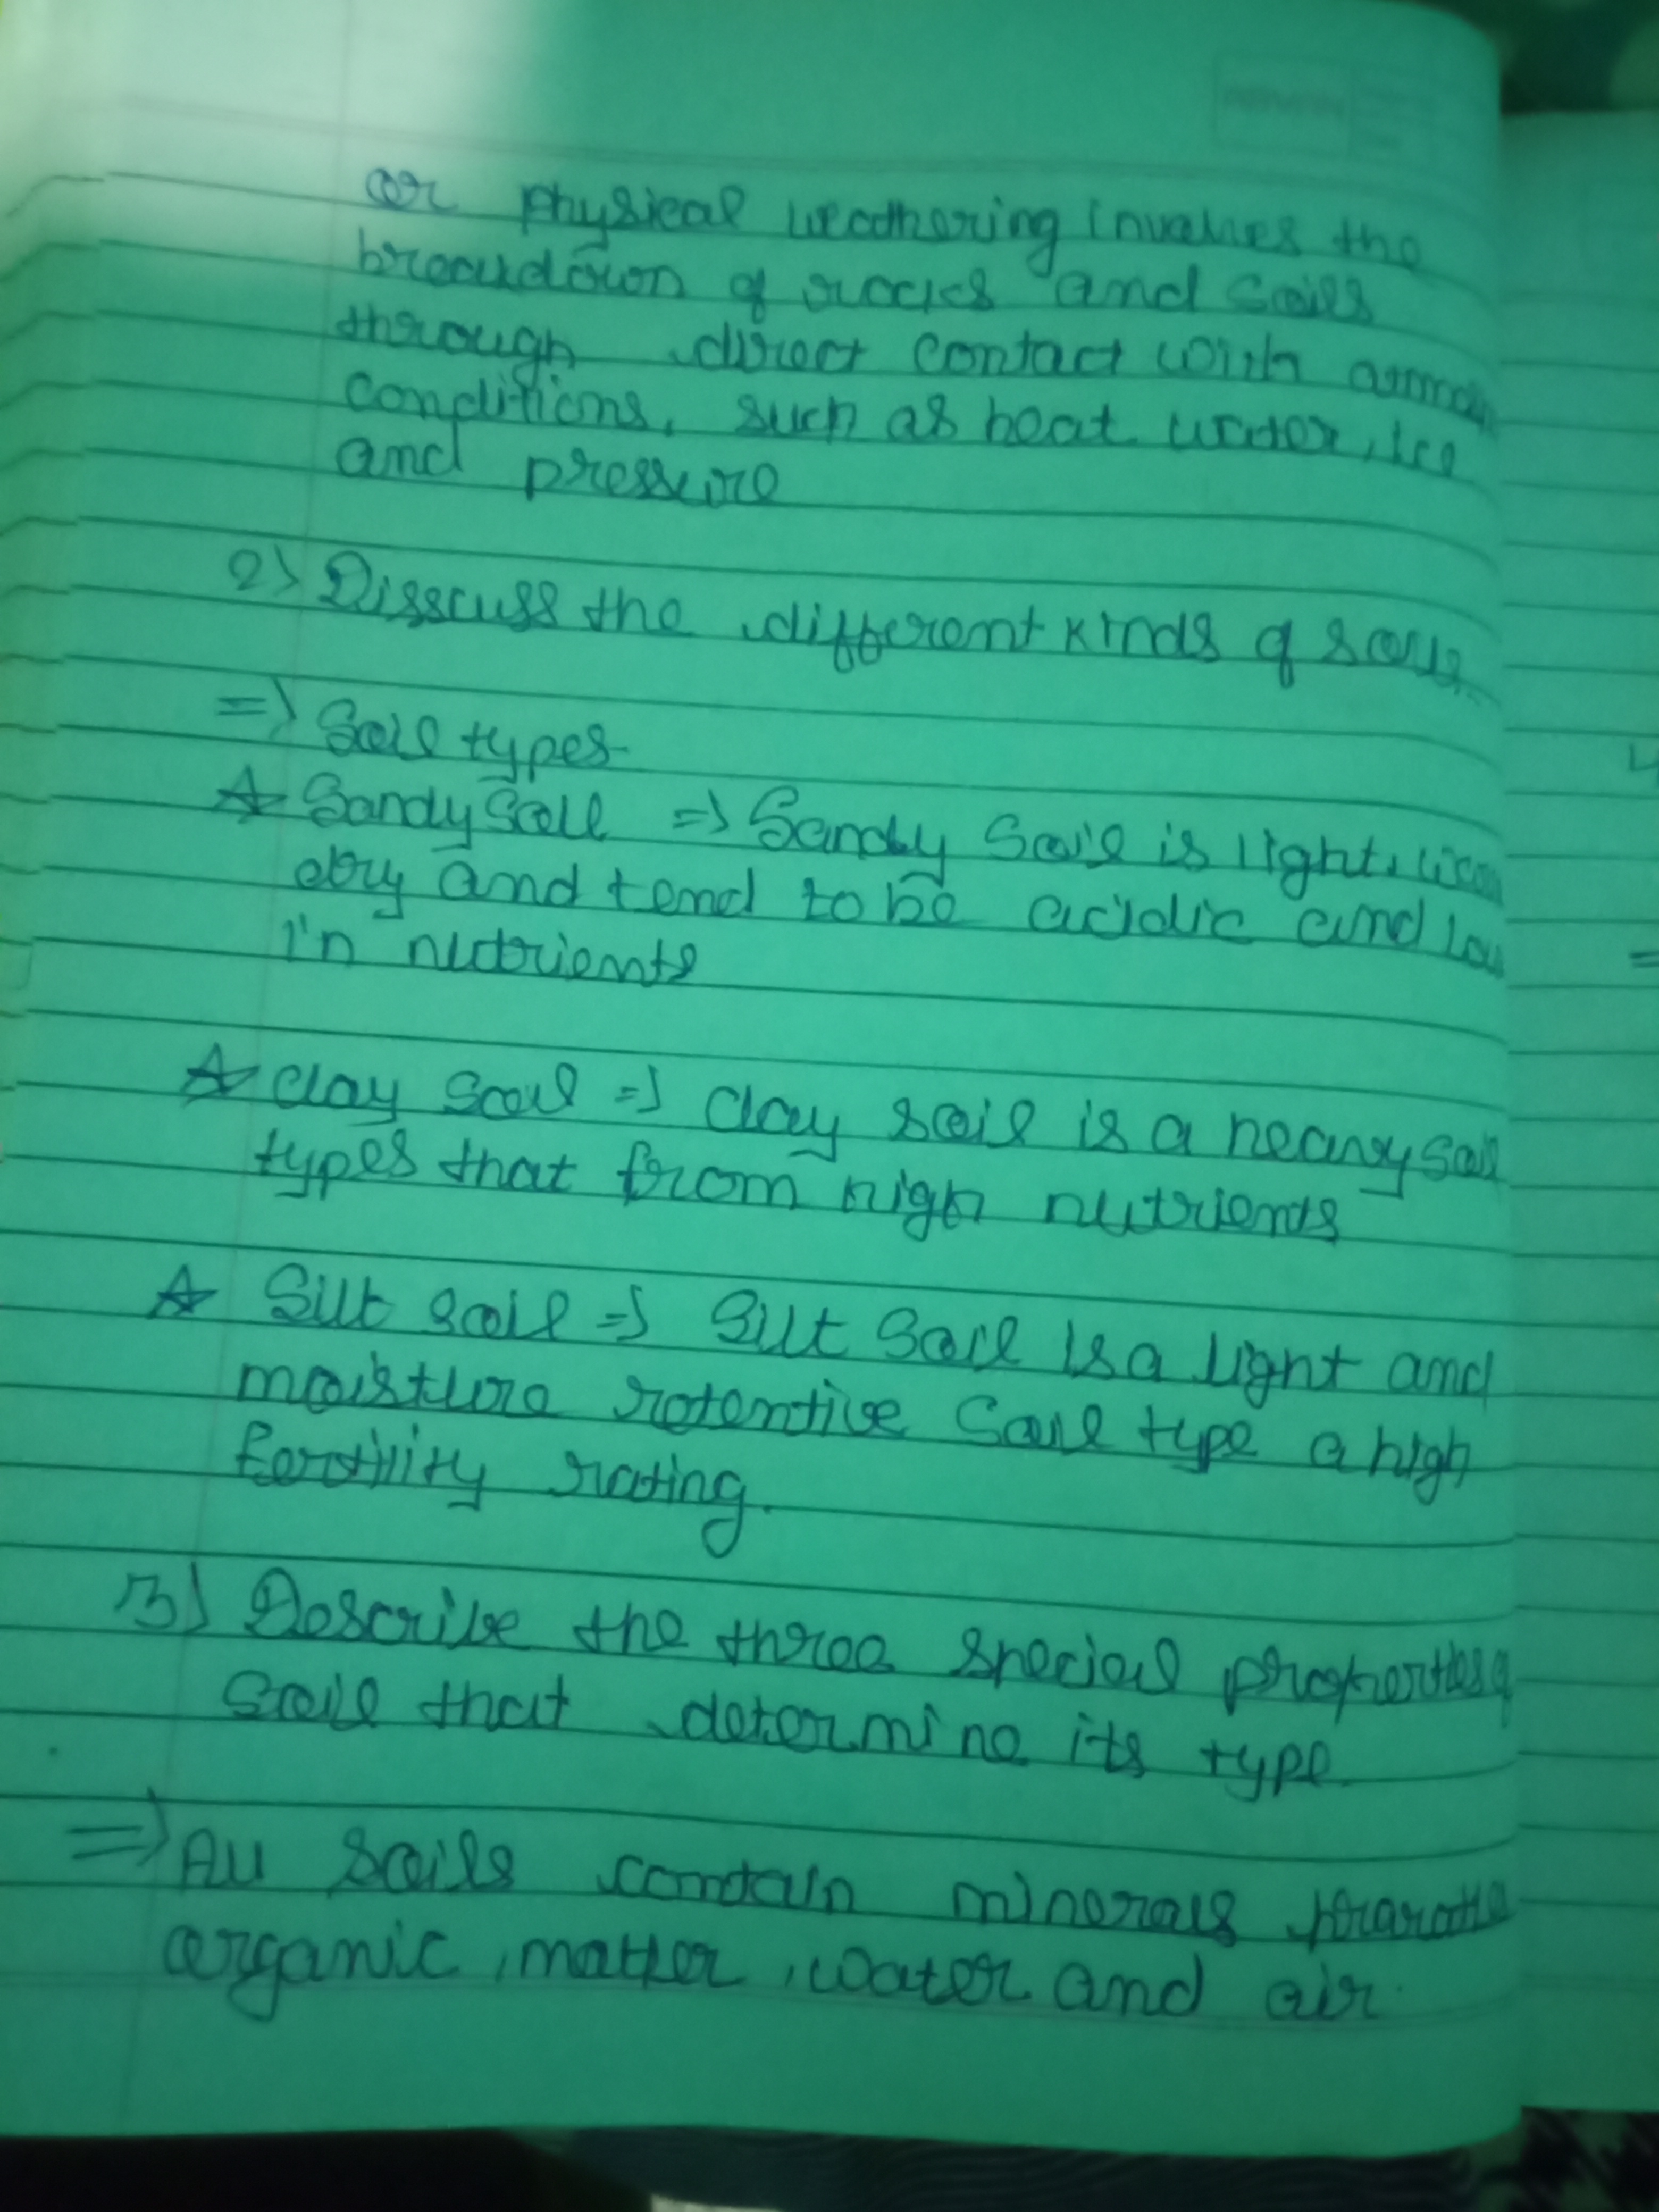 or physical weathering involves the
breakdown of rocks and soils
through direct contact with
conditions, such as heat water, ice
and pressure
2) Disscuss the different kinds of soils
=> Soil types-
☆ Sandy soil => Sandy Soil is light,
dry and tend to be acidic and low
in nutrients
☆ Clay soil => Clay soil is a heavy soil
types that from high nutrients
☆ Silt soil => Silt Soil is a light and
moisture retentive Soil type a high
fertility rating.
3) Describe the three special properties of
Soil that determine its type.
=> All soils contain minerals
organic, matter, water and air.